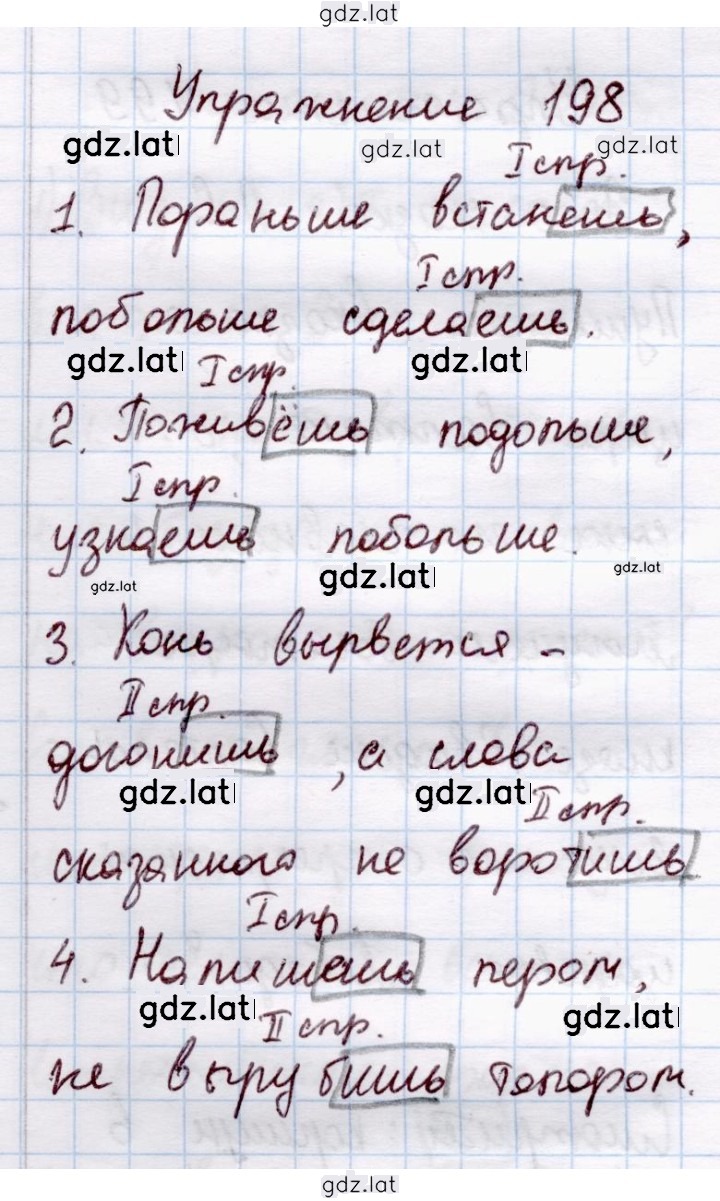 gdz.lat
Упражнение 198
gdz.lat gdz.lat gdz.lat
I спр.
1. Пораньше встанешь,
I спр.
побольше сделаешь.
gdz.lat gdz.lat
I спр.
2. Поживёшь подольше,
I спр.
узнаешь побольше.
gdz.lat gdz.lat gdz.lat
3. Конь вырвется –
II спр.
догонишь, а слова
gdz.lat gdz.lat
II спр.
сказанного не воротишь
I спр.
4. Напишешь пером,
gdz.lat gdz.lat
II спр.
не вырубишь топором.
gdz.lat